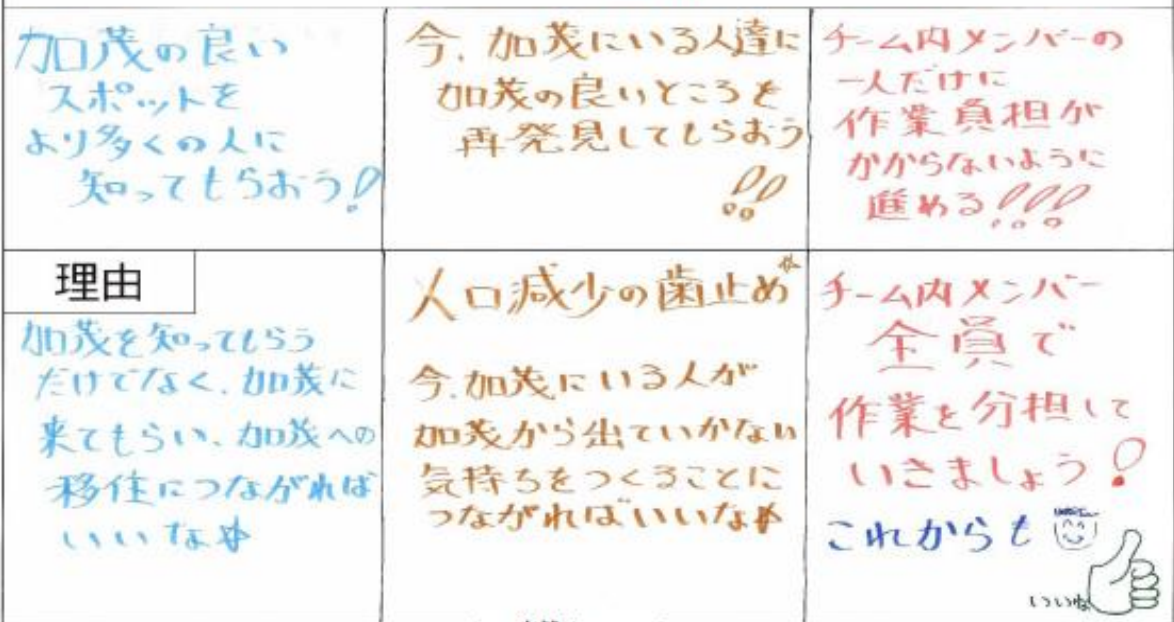 加茂の良い
スポットを
より多くの人に
知ってもらおう!
今、加茂にいる人達に
加茂の良いところを
再発見してもらおう
!!
チーム内メンバーの
一人だけに
作業負担が
かからないように
進める!!!
理由
加茂を知ってもらう
だけでなく、加茂に
来てもらい、加茂への
移住につながれば
いいな☆
人口減少の歯止め☆
今、加茂にいる人が
加茂から出ていかない
気持ちをつくることに
つながればいいな☆
チーム内メンバー
全員で
作業を分担して
いきましょう!
これからも
いいね